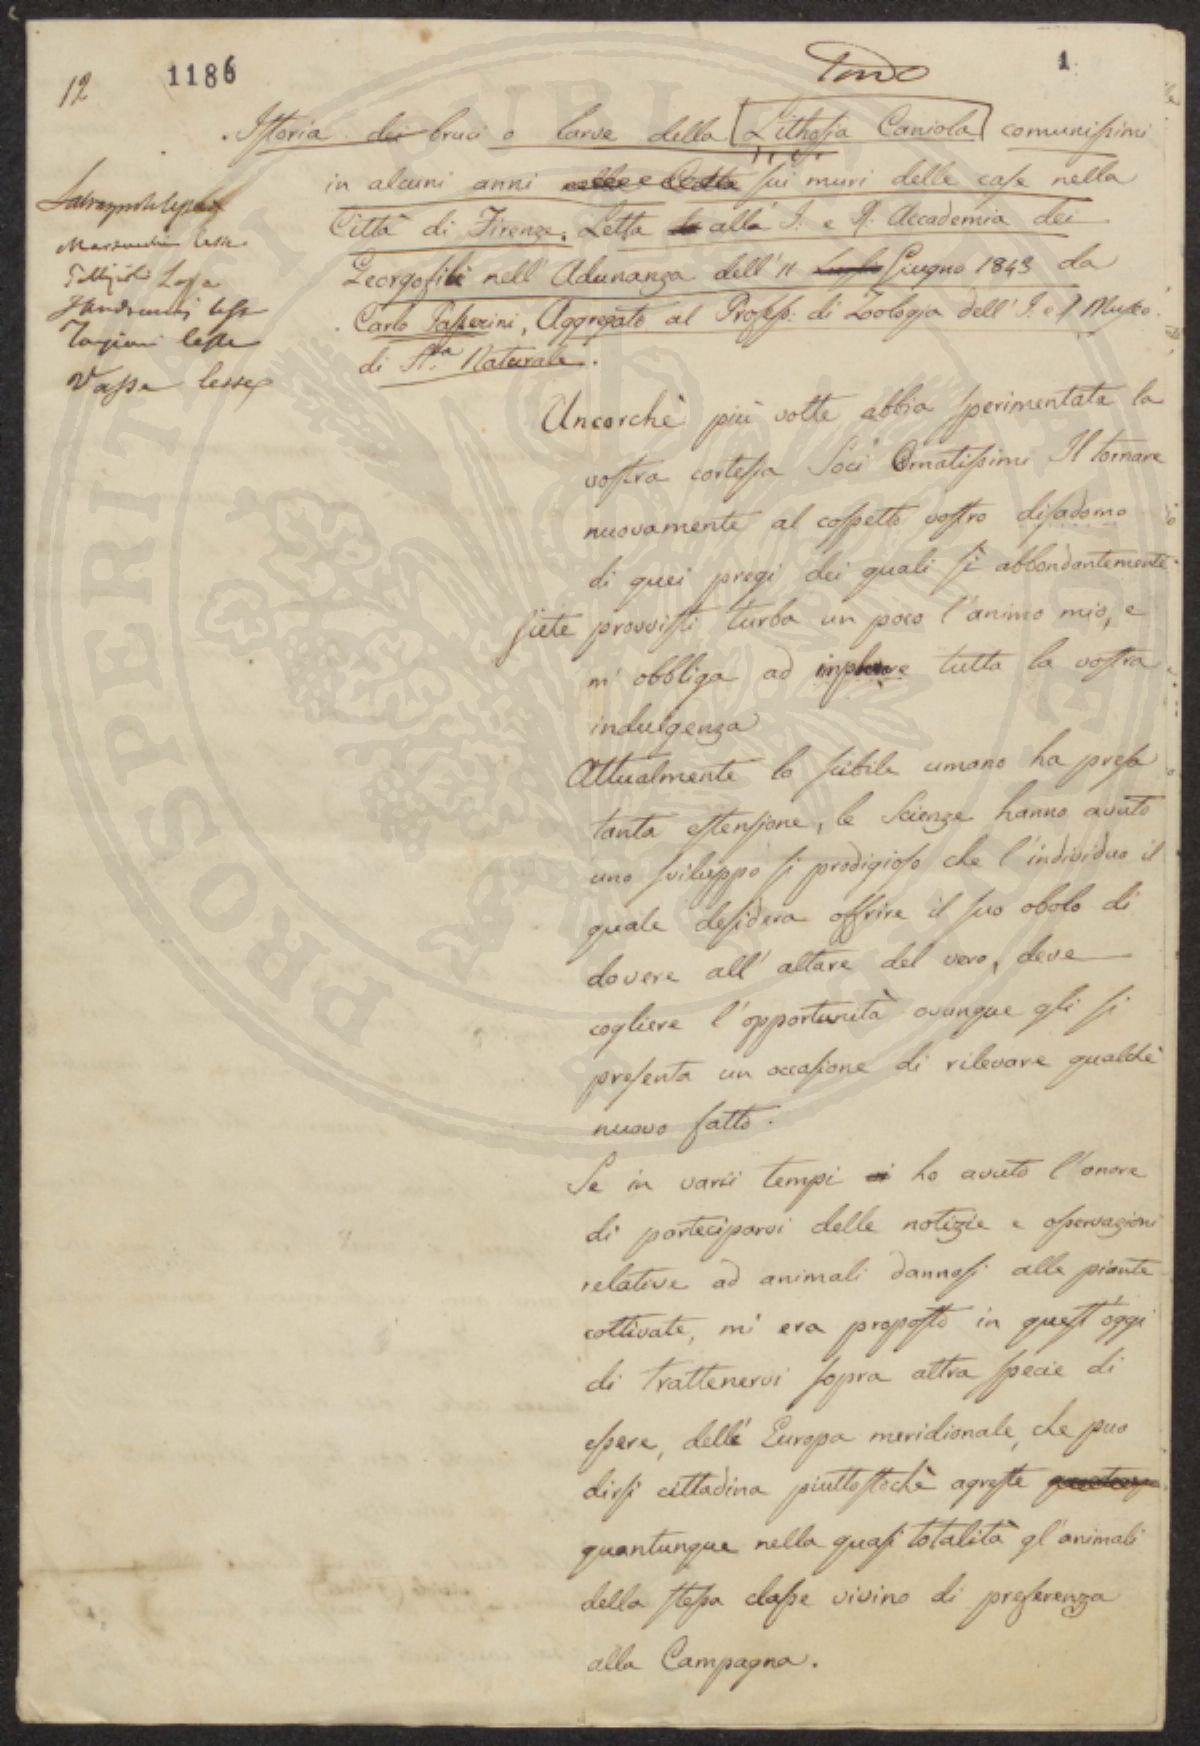 12
1186
Tordo
1
Istoria dei bruci o larve della Lithosia Caniola comunissimi
in alcuni anni sui muri delle case nella
Città di Firenze. Letta alla I. e R. Accademia dei
Georgofili nell' Adunanza dell' 11 Luglio Giugno 1843 da
Carlo Passerini, Aggregato al Profess. di Zoologia dell' I. e R. Museo
di Sta. Naturale.
lesse
lesse
Targioni lesse
Vassa lesse
Ancorchè più volte abbia sperimentata la
vostra cortesia Soci Ornatissimi Il tornare
nuovamente al cospetto vostro disadorno
di quei pregi dei quali sì abbondantemente
siete provvisti turba un poco l'animo mio, e
m' obbliga ad implorare tutta la vostra
indulgenza
Attualmente lo scibile umano ha presa
tanta estensione, le Scienze hanno avuto
uno sviluppo sì prodigioso che l'individuo il
quale desidera offrire il suo obolo di
dovere all' altare del vero, deve
cogliere l'opportunità ovunque gli si
presenta un occasione di rilevare qualche
nuovo fatto.
Se in varii tempi ho avuto l'onore
di parteciparvi delle notizie e osservazioni
relative ad animali dannosi alle piante
coltivate, mi era proposto in quest'oggi
di trattenervi sopra altra specie di
essere, dell' Europa meridionale, che puo
dirsi cittadina piuttostochè agreste
quantunque nella quasi totalità gl'animali
della stessa classe vivino di preferenza
alla Campagna.
PROSPERITATI PUBLICAE